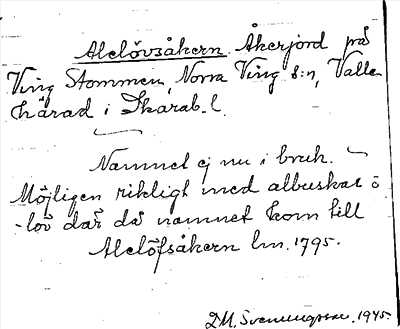 Alelövsåkern Åkerjord på
Ving Stommen, Norra Ving s:n, Valle
härad i Skarab. l.
Namnet ej nu i bruk.
Möjligen rikligt med albuskar o
-löv där då namnet kom till
Alelöfsåkern lm. 1795.
D.M. Svenungsson. 1945.